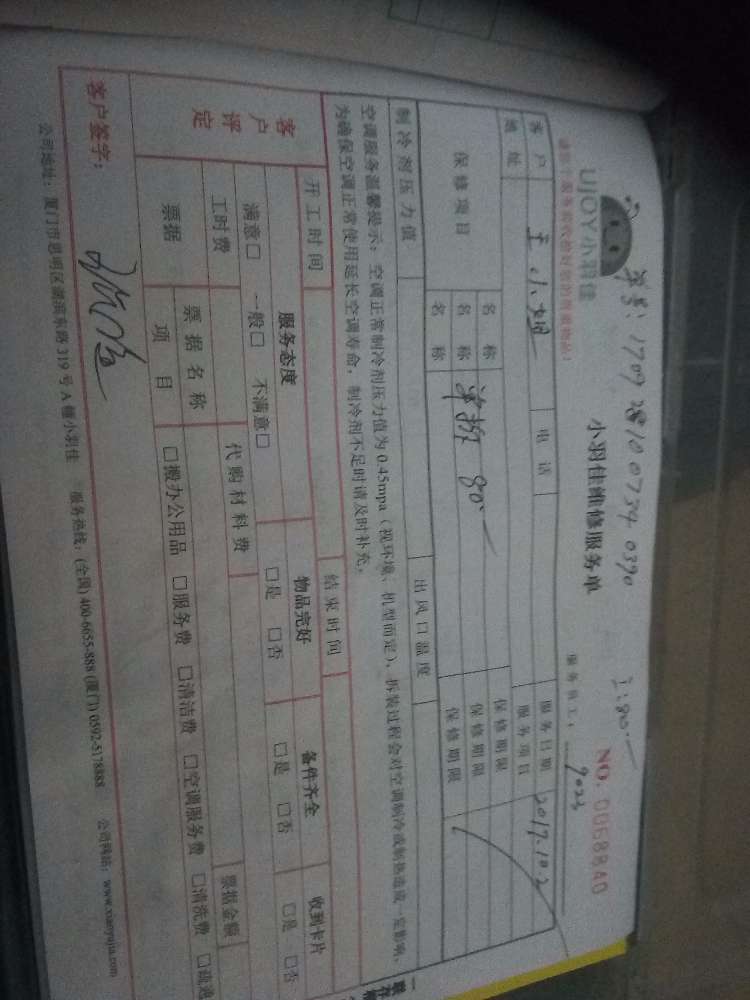 单号 1709 2810 0734 0390
工:80.一
UJOY小羽佳
小羽佳维修服务单
NO. 0068840
服务员工: 9023
客户 王小姐 电话 服务日期 2017.10.2
地址 服务项目
保修项目 名称 保修期限
名称 单拆 80.一 保修期限
名称 保修期限
制冷剂压力值 出风口温度
空调服务温馨提示:空调正常制冷剂压力值为0.45mpa(视环境、机型而定),拆装过程会对空调制冷或制热造成一定影响,
为确保空调正常使用延长空调寿命,制冷剂不足时请及时补充。
开工时间 结束时间
客户评定 服务态度 物品完好 备件齐全 收到卡片
满意□ 一般□ 不满意□ □是 □否 □是 □否 □是 □否
工时费 代购材料费 票据金额
票据 票据名称
项目 □搬办公用品 □服务费 □清洁费 □空调服务费 □清洗费 □疏通
客户签字:
公司地址:厦门市思明区湖滨东路319号A幢小羽佳 服务热线:(全国)400-6655-888 (厦门)0592-5178888 公司网站:www.xiaoyujia.com